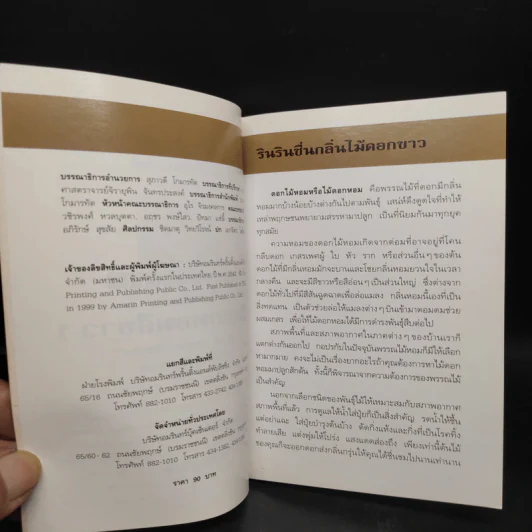 บรรณาธิการอำนวยการ สุภาวดี โกมารทัต บรรณาธิการที่ปรึกษา
ศาสตราจารย์จิรายุพิน จันทรประสงค์ บรรณาธิการสำนักพิมพ์
โกมารทัต หัวหน้ากองบรรณาธิการ
วชิรพงศ์ หวลบุตตา
อภิรักษ์ สุขสัย ศิลปกรรม
เจ้าของลิขสิทธิ์และผู้พิมพ์ผู้โฆษณา : บริษัทอมรินทร์พริ้นติ้ง
จำกัด (มหาชน) พิมพ์ครั้งแรกในประเทศไทย ปี พ.ศ.
Printing and Publishing Public Co., Ltd. First Published
in 1999 by Amarin Printing and Publishing Public Co., Ltd.
แยกสีและพิมพ์ที่
ฝ่ายโรงพิมพ์ บริษัทอมรินทร์พริ้นติ้งแอนด์พับลิชชิ่ง จำกัด
65/16 ถนนชัยพฤกษ์ (บรมราชชนนี) เขตตลิ่งชัน
โทรศัพท์ 882-1010 โทรสาร 433-2742,
จัดจำหน่ายทั่วประเทศโดย
บริษัทอมรินทร์บุ๊คเซ็นเตอร์ จำกัด
65/60-62 ถนนชัยพฤกษ์ (บรมราชชนนี) เขตตลิ่งชัน
โทรศัพท์ 882-1010 โทรสาร
ราคา 90 บาท
รินรินชื่นกลิ่นไม้ดอกขาว
ดอกไม้หอมหรือไม้ดอกหอม คือพรรณไม้ที่ดอกมีกลิ่น
หอมมากบ้างน้อยบ้างต่างกันไปตามพันธุ์ เสน่ห์ดึงดูดใจที่ทำให้
เหล่าพฤกษชนพยายามสรรหามาปลูก เป็นที่นิยมกันมาทุกยุค
ทุกสมัย
ความหอมของดอกไม้หอมเกิดจากต่อมที่อาจอยู่ที่โคน
กลีบดอก เกสรเพศผู้ ใบ หัว ราก หรือส่วนอื่นๆ ของต้น
ดอกไม้ที่มีกลิ่นหอมมักจะบานและโชยกลิ่นหอมยวนใจในเวลา
กลางคืน และจะมีสีขาวหรือสีอ่อนๆ เป็นส่วนใหญ่ ซึ่งต่างจาก
ดอกไม้ทั่วไปที่มีสีสันฉูดฉาดเพื่อล่อแมลง กลิ่นหอมนี้เองที่เป็น
สิ่งทดแทน เป็นตัวช่วยล่อแมลงต่างๆ บินเข้ามาดอมดมช่วย
ผสมเกสร เพื่อให้ไม้ดอกหอมได้มีการดำรงพันธุ์สืบต่อไป
สภาพพื้นที่และสภาพอากาศในภาคต่างๆ ของบ้านเราก็
แตกต่างกันออกไป กอปรกับในปัจจุบันพรรณไม้หอมก็มีให้เลือก
มากมาย คงจะไม่เป็นเรื่องยากอะไรถ้าคุณต้องการหาไม้ดอก
หอมมาปลูกสักต้น ทั้งนี้ก็พิจารณาจากความต้องการของพรรณไม้
เป็นสำคัญ
นอกจากเลือกชนิดของพันธุ์ไม้ให้เหมาะสมกับสภาพอากาศ
สภาพพื้นที่แล้ว การดูแลให้น้ำใส่ปุ๋ยก็เป็นสิ่งสำคัญ รดน้ำให้ชื้น
แต่อย่าแฉะ ใส่ปุ๋ยบำรุงต้นบ้าง ตัดกิ่งแห้งและกิ่งที่เป็นโรคทิ้ง
ทำลายเสีย แต่งพุ่มให้โปร่ง แสงแดดส่องถึง เพียงเท่านี้ต้นไม้
ของคุณก็จะออกดอกส่งกลิ่นกรุ่นให้คุณได้ชื่นชมไปนานเท่านาน